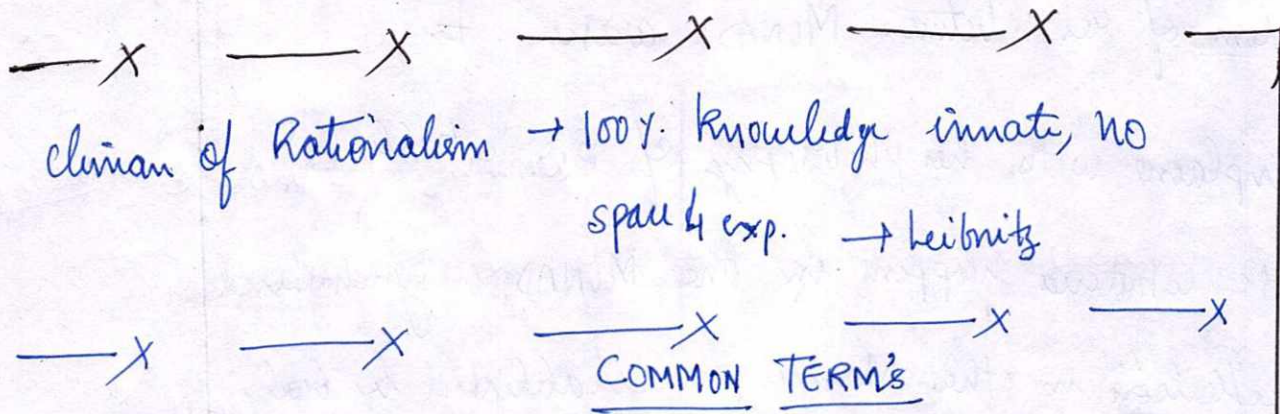 climax of Rationalism → 100%. knowledge innate, no
space 4 exp. → Leibnitz
COMMON TERM's